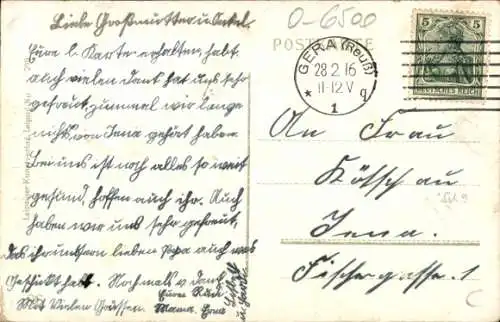 Liebe Großmutter u. Onkel.
Eure l. Karte erhalten, habt
auch vielen Dank hat uns sehr
gefreut, zummel wir lange
nichts von Jena gehört haben
Bei uns ist noch alles so weit
gesund, hoffen auch ihr. Auch
haben wir uns sehr gefreut,
das ihr unsern lieben Papa auch was
Geschickt habt. Nochmals v. Dank
Mit Vielen Grüssen. Mama.
Eure
0-6500
POSTKARTE
GERA (Reuß)
28.2.16
11-12 V.
* 1 q
5 5
DEUTSCHES REICH
An Frau
Kötsch au
Jena.
Fischergasse. 1